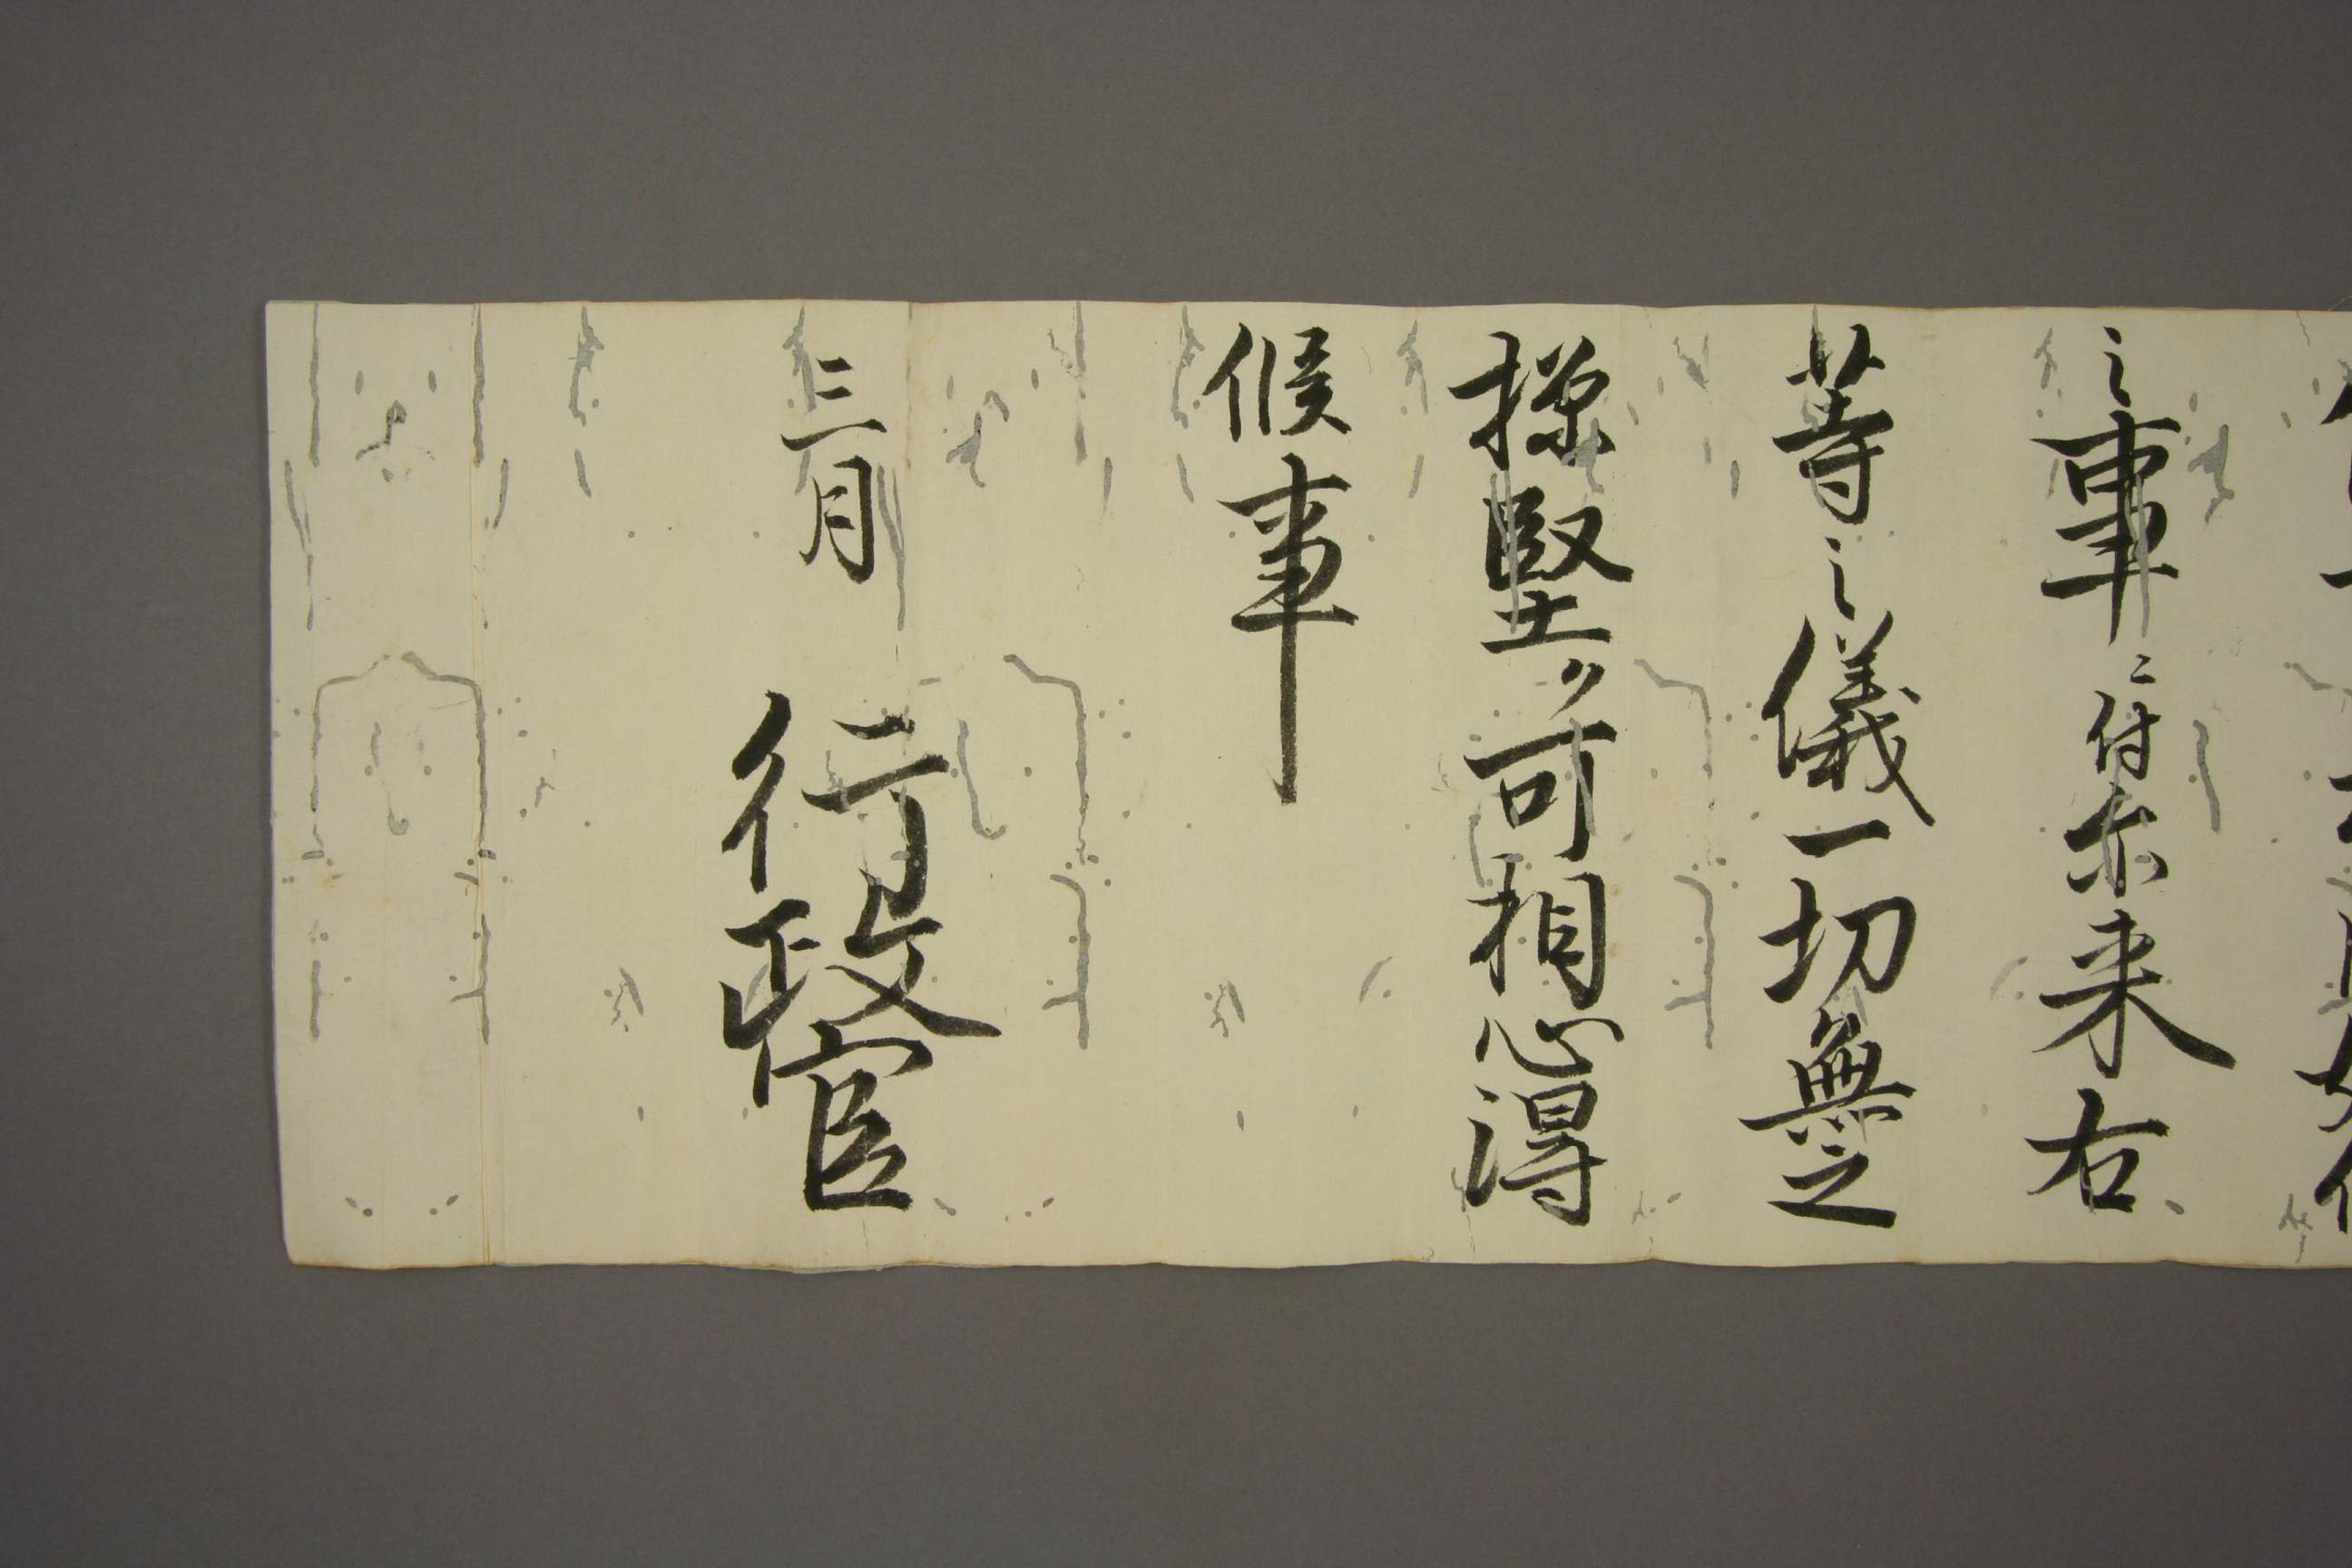 之事ニ付尓来右
等之儀一切無之
様堅ク可相心得
候事
三月
行政官